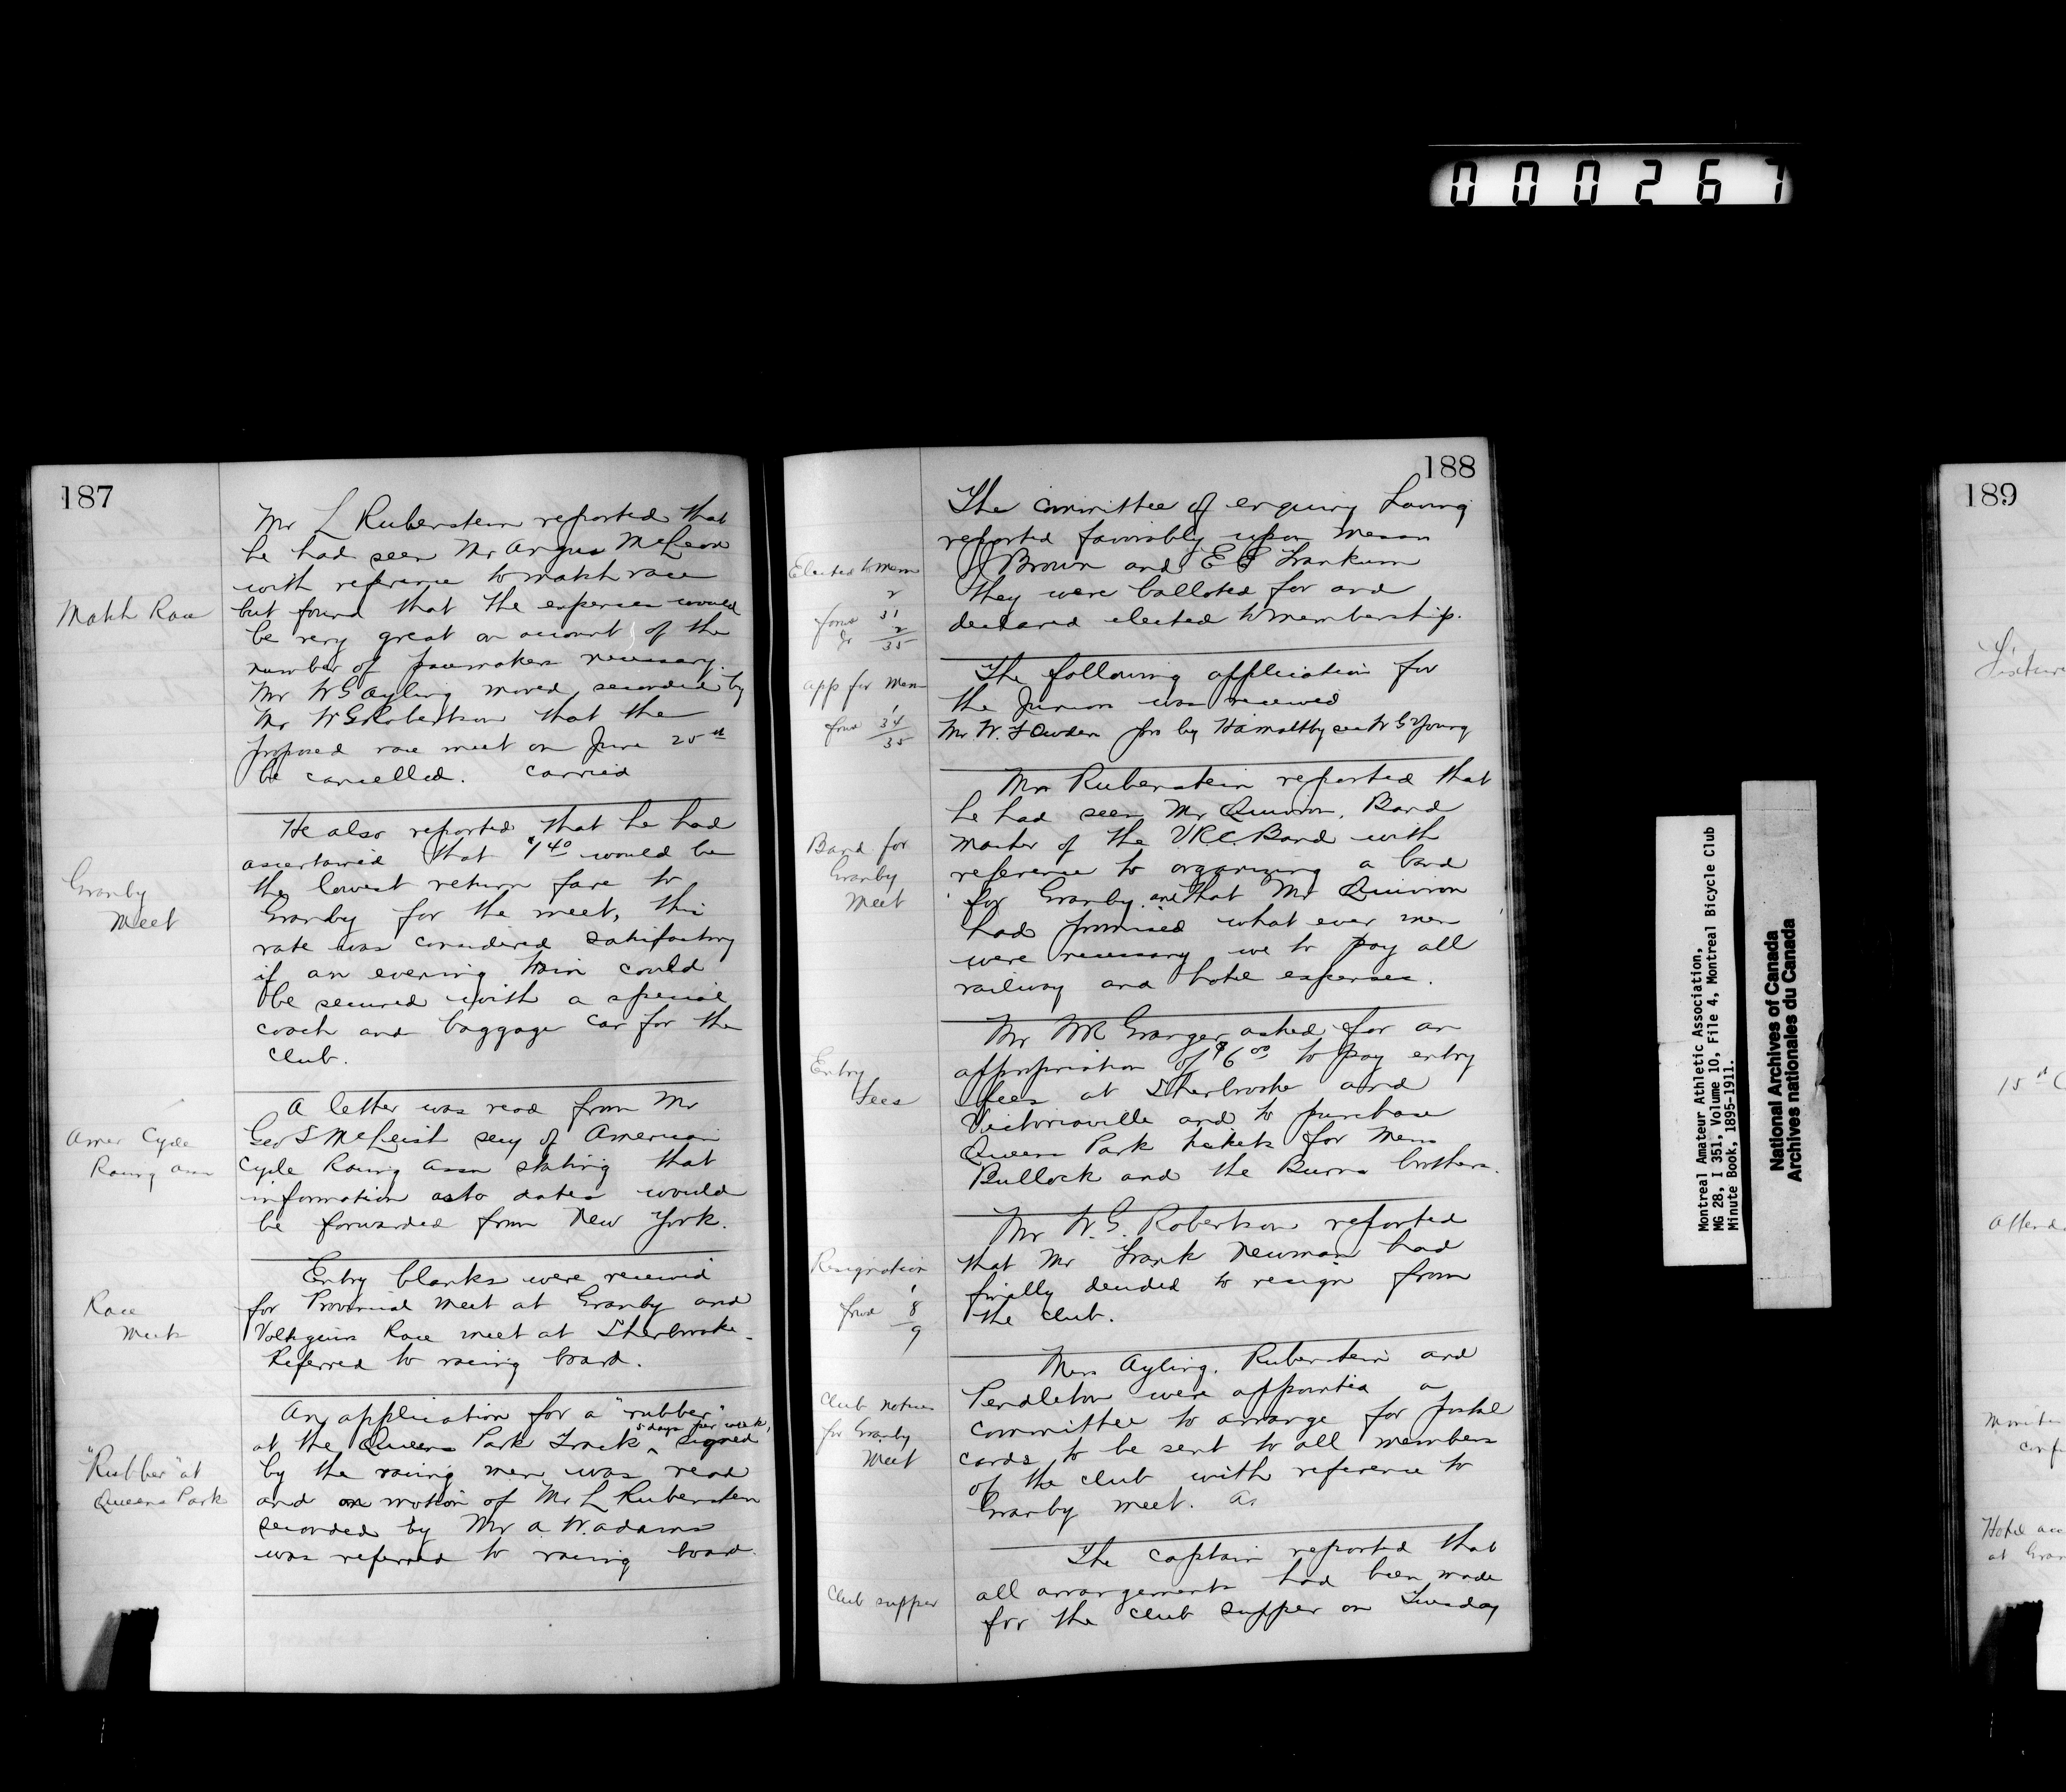 000267
187
Mr L Rubenstein reported that
he had seen Mr Angus McLeod
with reference to match race
Match Race
but found that the expenses would
be very great on account of the
number of pacemakers necessary.
Mr W G Ayling moved, seconded by
Mr W G Robertson that the
proposed race meet on June 25th
be cancelled. Carried
He also reported that he had
ascertained that $1 40 would be
Granby
Meet
the lowest return fare to
Granby for the meet, this
rate was considered satisfactory
if an evening train could
be secured with a special
coach and baggage car for the
club.
A letter was read from Mr
Amer Cycle
Racing assn
Geo S McLeish secy of American
Cycle Racing assn stating that
information as to dates would
be forwarded from New York.
Entry blanks were received
Race
Meets
for Provincial Meet at Granby and
Voltigeurs Race meet at Sherbrooke.
Referred to racing board.
An application for a "rubber"
5 days per week,
at the Queens Park Track ‸ signed
"Rubber" at
Queens Park
by the racing men was read
and on motion of Mr L Rubenstein
seconded by Mr A. W. Adams
was referred to racing board.
188
The committee of enquiry having
reported favorably upon Messrs
Elected to Mem
Brown and E Frankum
they were balloted for and
declared elected to membership.
2
forwd 31
2
35
The following application for
app for Mem
the Juniors was received
1
forwd 34
35
Mr W. F Owden pro by Maltby sec W G Young
Mr Rubenstein reported that
he had seen Mr Quirion, Band
Band for
Granby
Meet
master of the V.R.C. Band with
reference to organizing a band
for Granby. and that Mr Quirion
had promised what ever men
were necessary we to pay all
railway and hotel expenses.
Mr W R Granger asked for an
Entry
fees
appropriation of $6 00 to pay entry
fees at Sherbrooke and
Victoriaville and to purchase
Queens Park tickets for Messrs
Bullock and the Burns brothers.
Mr W. G. Robertson reported
Resignation
that Mr Frank Newman had
finally decided to resign from
the club.
1
forwd 8
9
Messrs Ayling, Rubenstein and
Club notices
for Granby
Meet
Pendleton were appointed a
committee to arrange for postal
cards to be sent to all members
of the club with reference to
Granby meet. As
The captain reported that
Club supper
all arrangements had been made
for the club supper on Tuesday
Montreal Amateur Athletic Association,
MG 28, I 351, Volume 10, File 4, Montreal Bicycle Club
Minute Book, 1895-1911.
National Archives of Canada
Archives nationales du Canada
189
15th
Attend
Hotel acc
at Gran